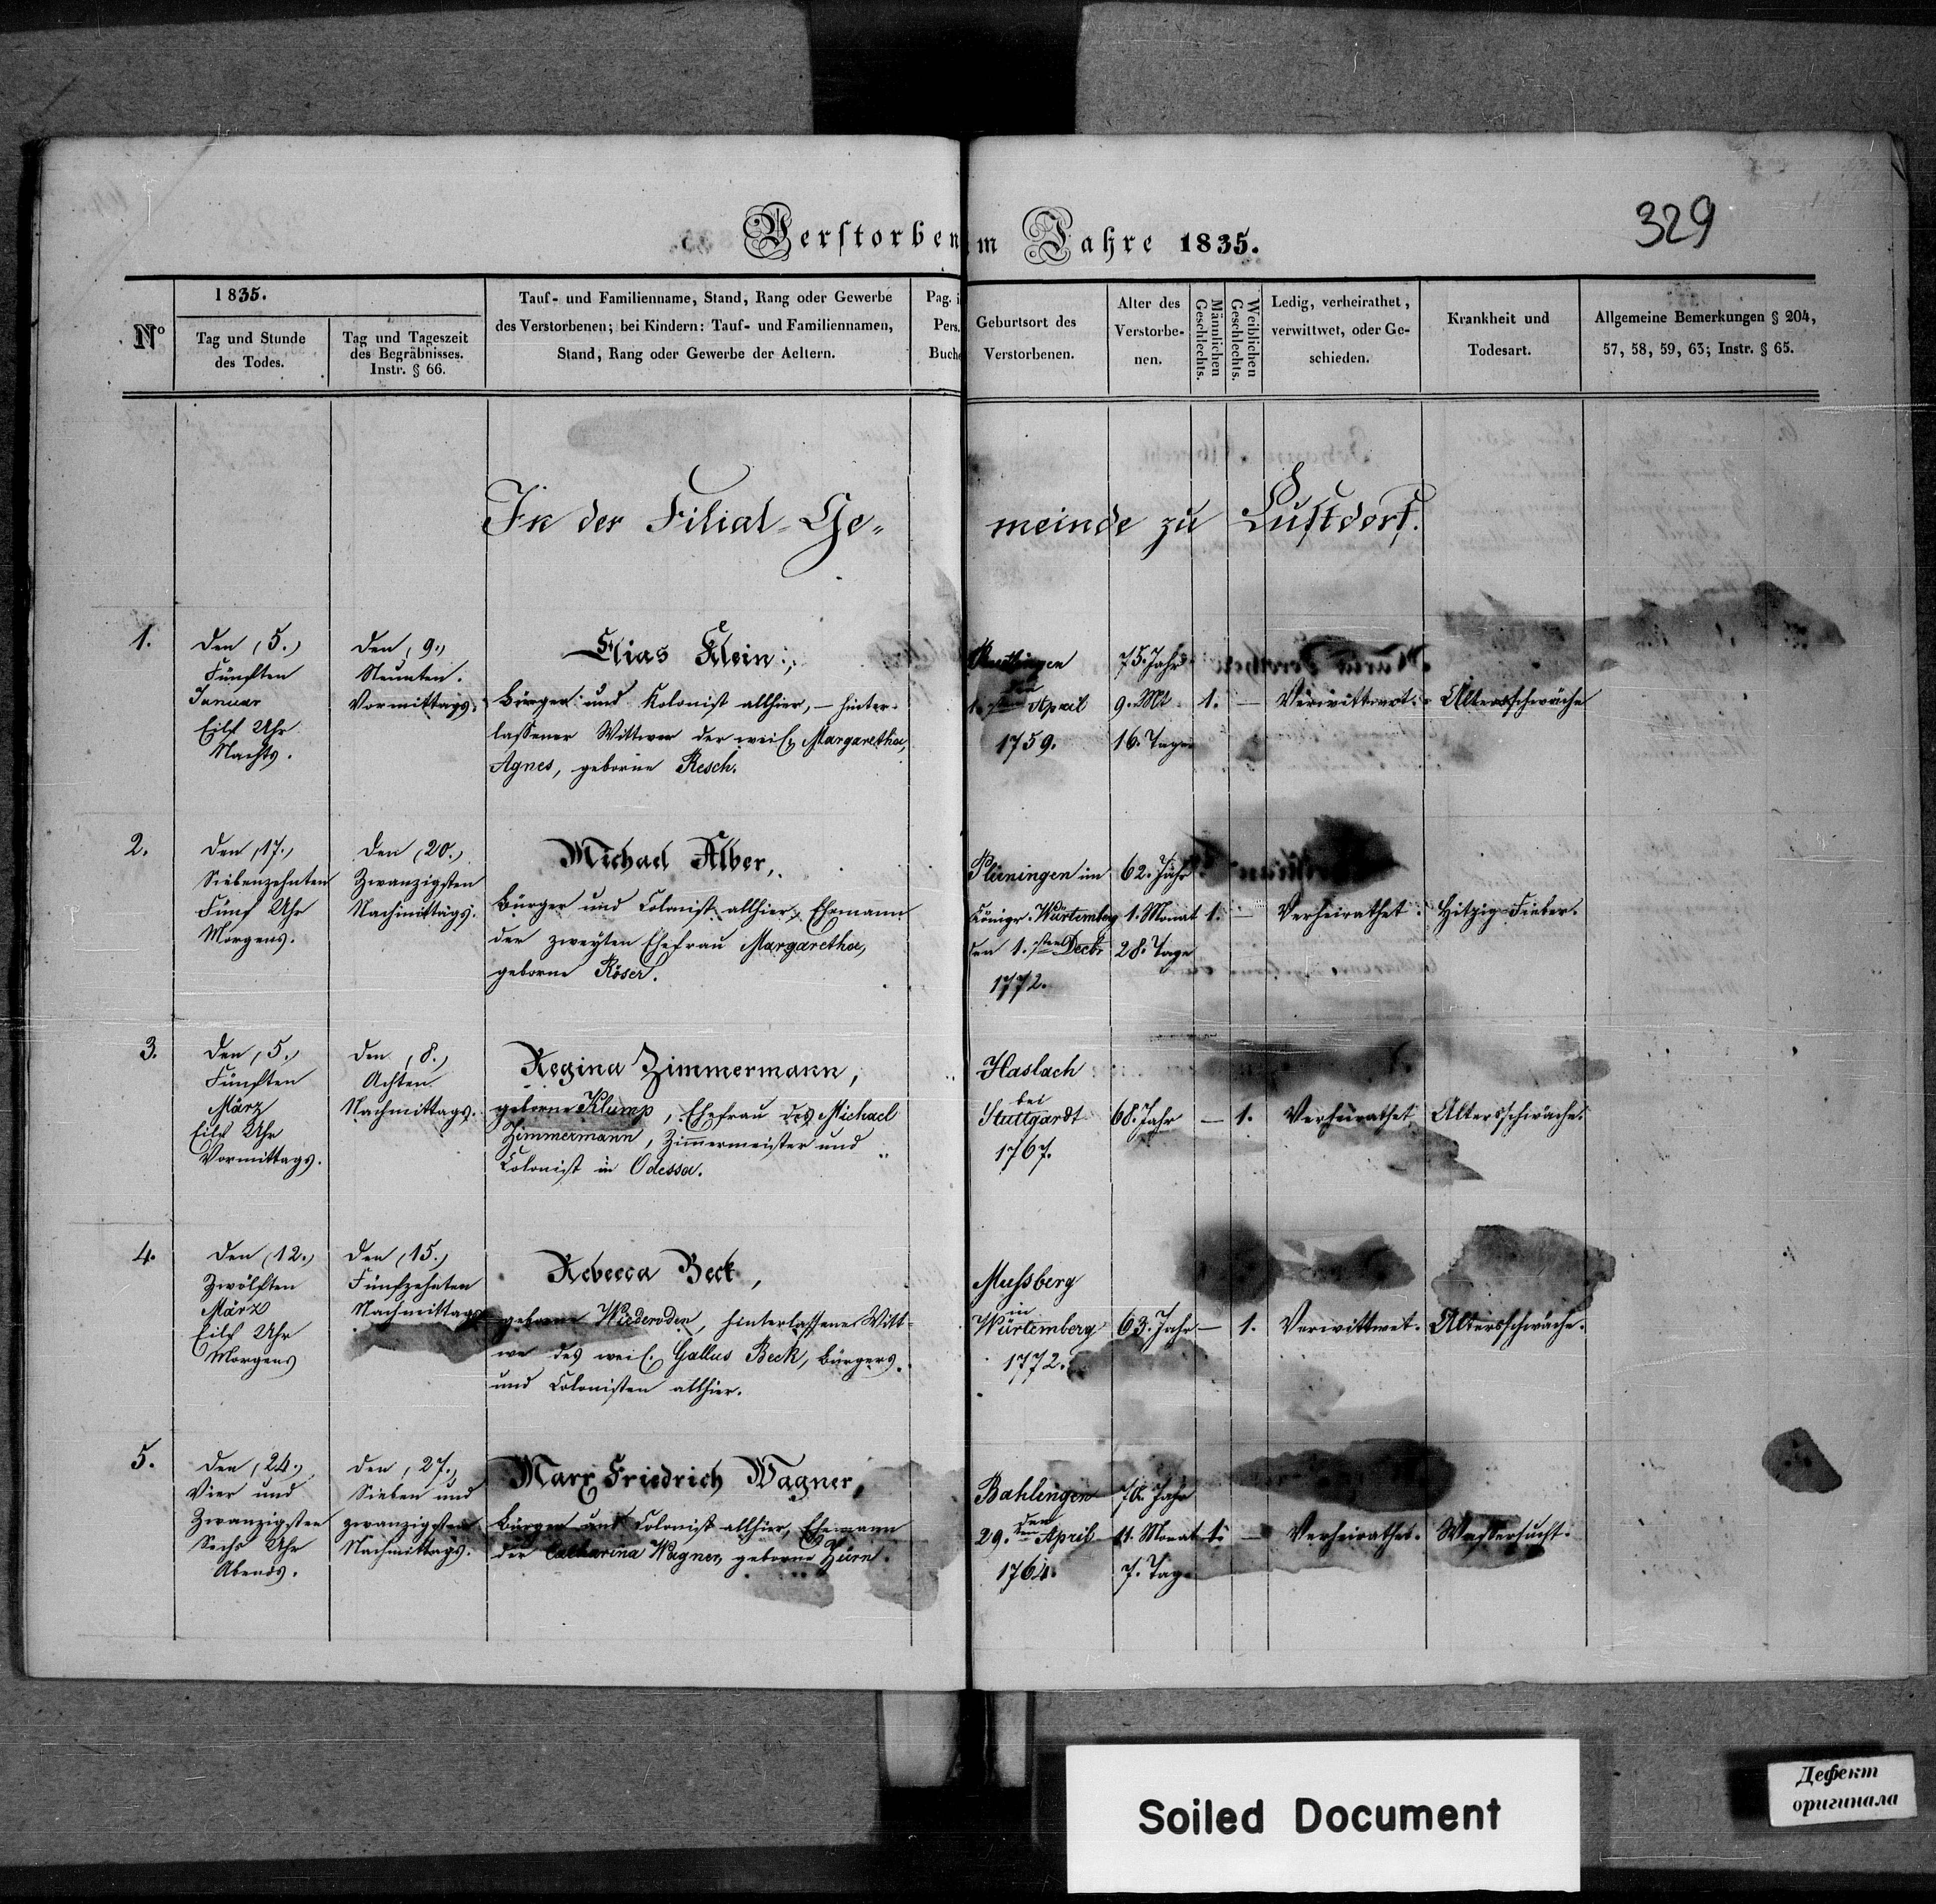 329
Verstorben m Jahre 1835.
No
1835.
Tag und Stunde
des Todes.
Tag und Tageszeit
des Begräbnisses.
Instr. § 66.
Tauf- und Familienname, Stand, Rang oder Gewerbe
des Verstorbenen; bei Kindern: Tauf- und Familiennamen,
Stand, Rang oder Gewerbe der Aeltern.
Pag. i
Pers.
Buche
Geburtsort des
Verstorbenen.
Alter des
Verstorbe-
nen.
Männlichen
Geschlechts.
Weiblichen
Geschlechts.
Ledig, verheirathet,
verwittwet, oder Ge-
schieden.
Krankheit und
Todesart.
Allgemeine Bemerkungen § 204,
57, 58, 59, 63; Instr. § 65.
In der Filial-Ge- meinde zu Lustdorf.
1.
Den (5.)
Fünften
Januar
Eilf Uhr
Nachts.
Den (9.)
Neunten.
Vormittags.
Elias Klein,
Bürger und Kolonist allhier, – hinter-
lassener Wittwer der weil. Margaretha,
Agnes, geborne Resch.
April
1759.
75. Jahr
9. Mt
16. Tage
1.
—
Verwittwet.
Altersschwäche
2.
Den (17.)
Siebenzehnten
Fünf Uhr
Morgens.
Den (20.)
Zwanzigsten
Nachmittags.
Michael Alber,
Bürger und Colonist allhier, Ehemann
der zweyten Ehefrau Margaretha,
geborne Röser.
Plieningen im
Königr. Würtemberg
den 1. sten Decbr
1772.
62. Jahr
1. Monat
28. Tage
1.
—
Verheirathet.
Hitzig Fieber.
3.
Den (5.)
Fünften
März
Eilf Uhr
Vormittags.
Den (8.)
Achten
Nachmittags.
Regina Zimmermann,
geborne Klump, Ehefrau des Michael
Zimmermann, Zimmermeister und
Colonist in Odessa.
Haslach
bei
Stuttgardt
1767.
68. Jahr
—
1.
Verheirathet
Altersschwäche.
4.
Den (12.)
Zwölften
März
Eilf Uhr
Morgens
Den (15.)
Fünfzehnten
Nachmittags
Rebecca Beck,
geborne, hinterlassene Witt-
we des weil. Gallus Beck, Bürgers
und Colonisten allhier.
Mussberg
in
Würtemberg
1772.
63. Jahr
—
1.
Verwittwet.
Altersschwäche.
5.
Den (24.)
Vier und
Zwanzigsten
Sechs Uhr
Abends.
Den (27.)
Sieben und
zwanzigsten
Nachmittags.
Marx Friedrich Wagner,
Bürger und Colonist allhier, Ehemann
der Catharina Wagner, geborne
Bahlingen
den
29. ten April
1764.
70. Jahr
11. Monat
7. Tage
1.
—
Verheirathet.
Wassersucht.
Soiled Document
Дефект
оригинала